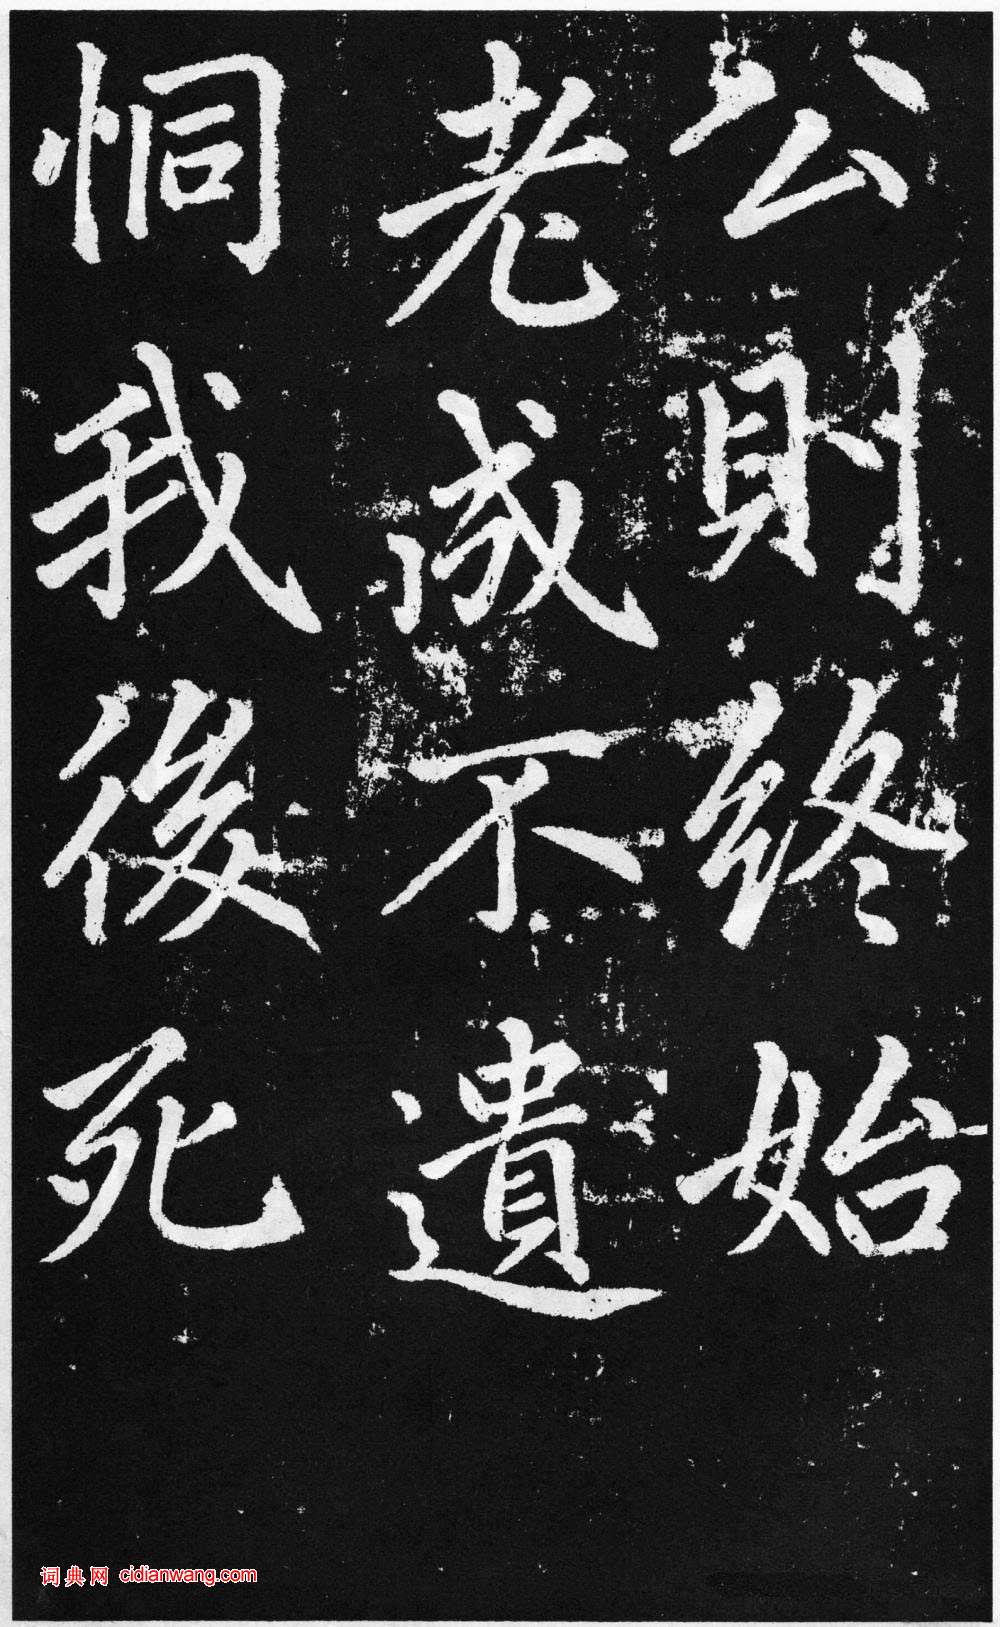 公則終始
老成不遺
恫我後死
词典网 cidianwang.com